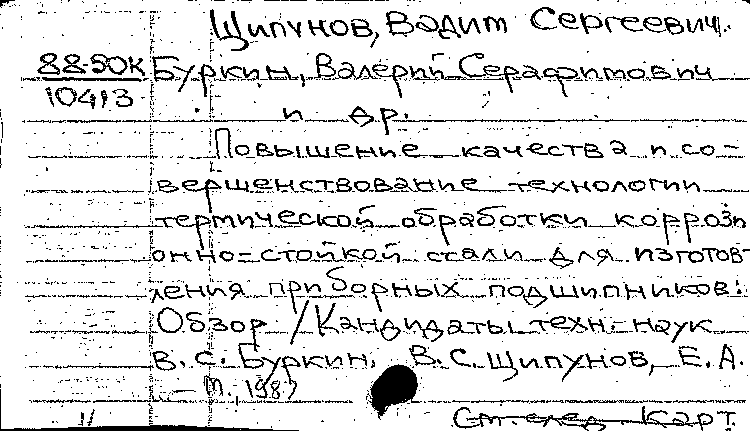 Щипунов, Вадим Сергеевич.
88-50К Буркин, Валерий Серафимович
10413
и др.
Повышение качества и со-
вершенствование технологии
термической обработки коррози
онно-стойкой стали для изготов-
ления приборных подшипников:
Обзор / Кандидаты техн. наук
В. С. Буркин, В. С. Щипунов, Е. А.
- М., 1987
См. след. карт.